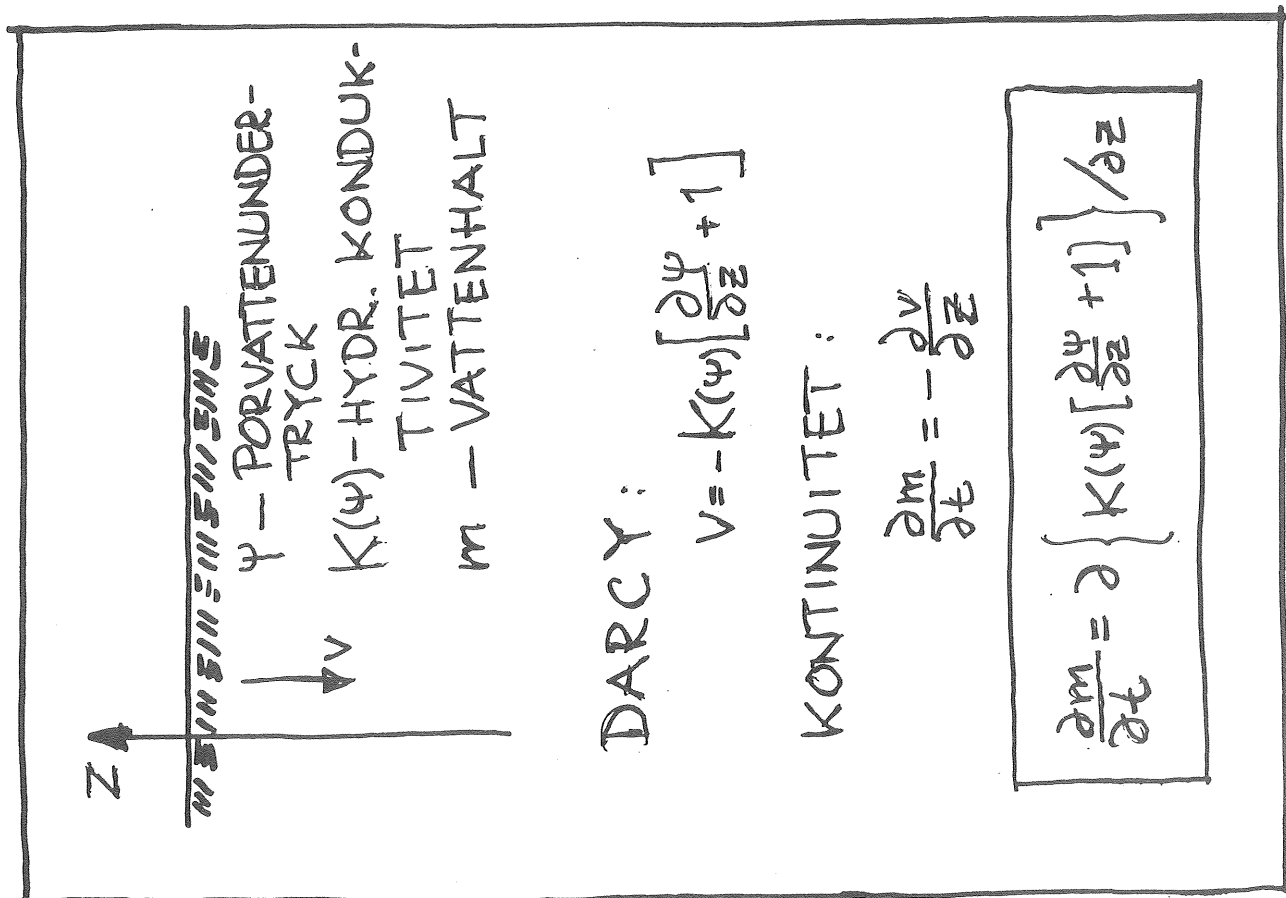 Z
V
Ψ – PORVATTENUNDER-
TRYCK
K(Ψ)-HYDR. KONDUK-
TIVITET
m – VATTENHALT
DARCY:
V = -K(Ψ)[∂Ψ/∂z + 1]
KONTINUITET:
∂m/∂t = -∂v/∂z
∂m/∂t = ∂{K(Ψ)[∂Ψ/∂z + 1]}/∂z